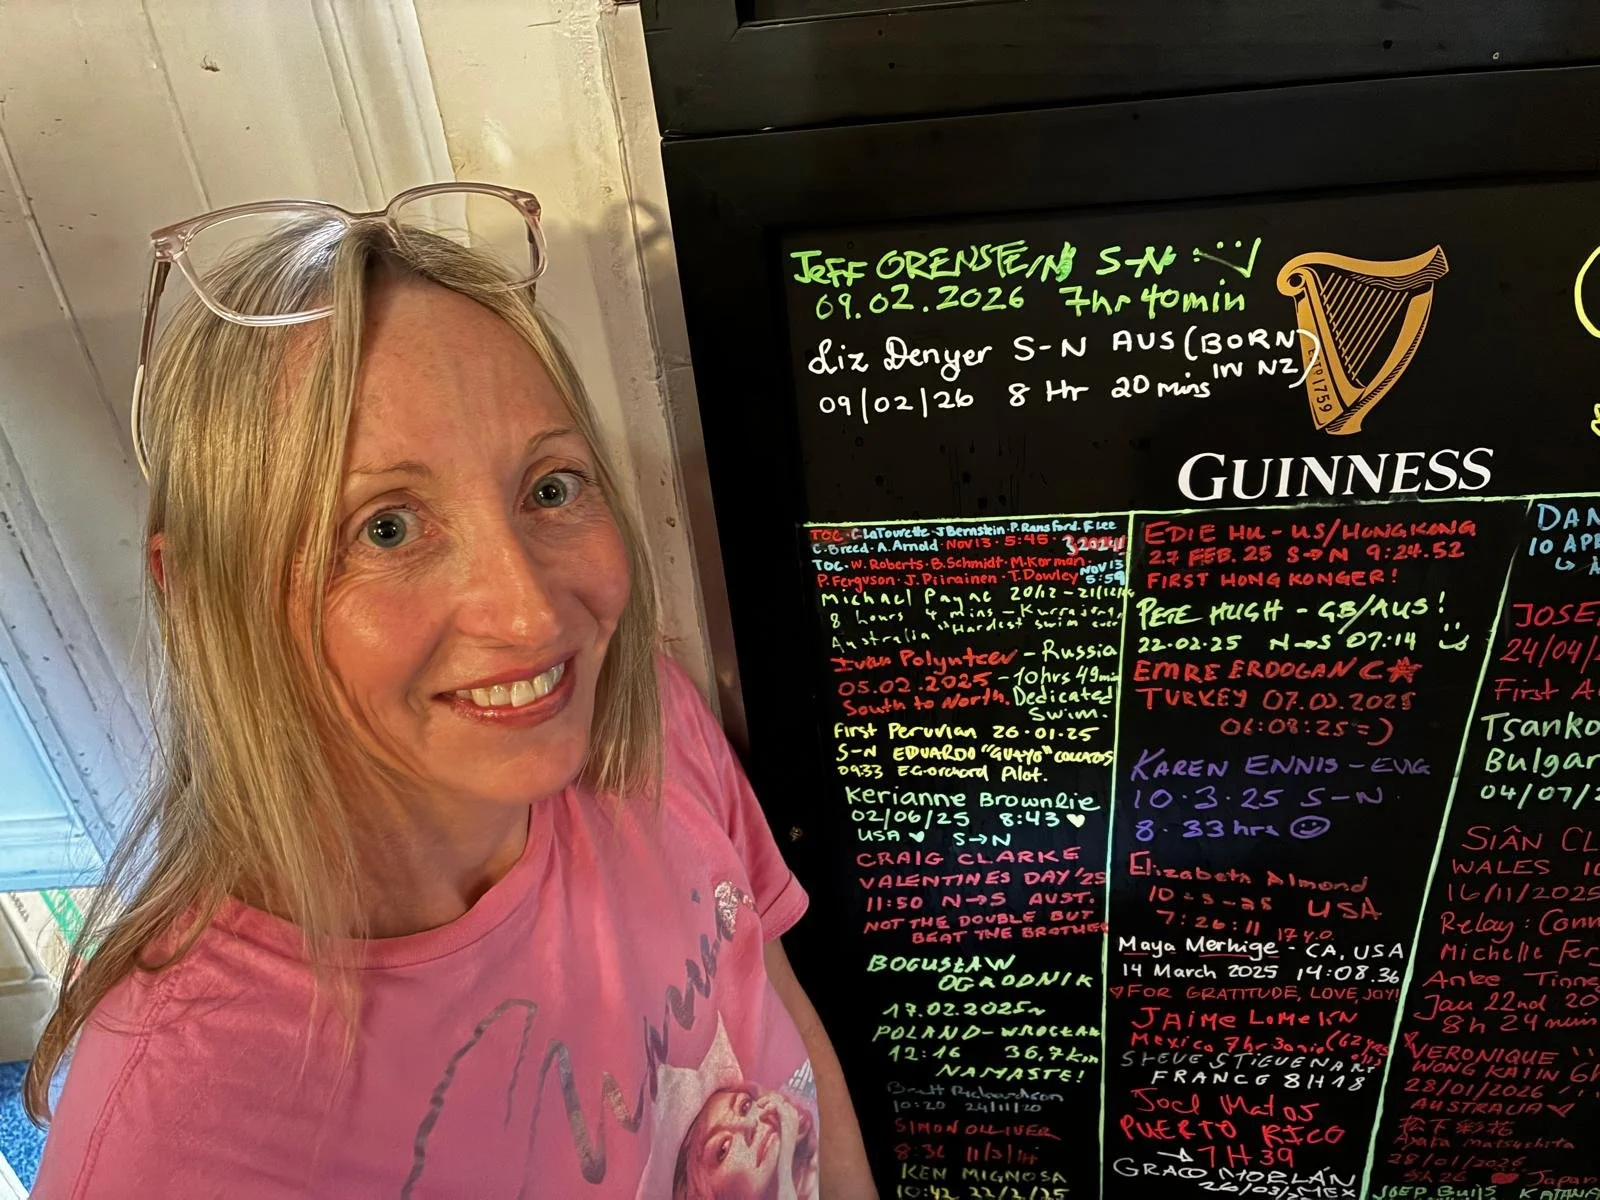 JEFF ORENSTEIN S-N
09.02.2026 7hr 40min
Liz Denyer S-N AUS (BORN
IN NZ)
09/02/26 8 Hr 20 mins
ESTD 1759
GUINNESS
TOC · C LaTourette · J Bernstein · P. Ransford · F Lee
C. Breed · A. Arnold · Nov 13 · 5:45 · 2024
TOC · W. Roberts · B. Schmidt · M. Korman ·
P. Ferguson · J. Piirainen · T. Dowley NOV 13
5:59
Michael Payne 20/12 - 21/12/
8 hours 4 mins - Kurrajong,
Australia "Hardest swim ever"
Ivan Polyntcev - Russia
05.02.2025 - 10hrs 49min
South to North. Dedicated
Swim.
First Peruvian 26.01.25
S-N EDUARDO "GUAYO" COLLAZOS
0933 E Gorchard Pilot.
Kerianne Brownlie
02/06/25 8:43 ♥
USA ♥ S→N
CRAIG CLARKE
VALENTINES DAY '25
11:50 N→S AUST.
NOT THE DOUBLE BUT
BEAT THE BROTHER
BOGUSŁAW
OGRODNIK
17.02.2025
POLAND-WROCŁAW
12:16 36,7km
NAMASTE!
Brett Richardson
10:20 24/11/20
SIMON OLLIVER
8:36 11/3/
KEN MIGNOSA
10:42 22/2/25
EDIE HU - US/HONG KONG
27 FEB. 25 S→N 9:24.52
FIRST HONG KONGER!
PETE HUGH - GB/AUS!
22.02.25 N→S 07:14
EMRE ERDOGAN
TURKEY 07.03.2025
06:08:25 =)
KAREN ENNIS - ENG
10.3.25 S-N
8.33hrs ☺
Elizabeth Almond
USA
7:26:11 17 y.o.
Maya Merhige - CA, USA
14 March 2025 14:08.36
♡FOR GRATITUDE, LOVE, JOY!
JAIME LOMELIN
Mexico 7hr (62
STEVE STIEVENART
FRANCE 8H18
Joel Matos
PUERTO RICO
→ 7H39
MORLÁN
26/03/ MEX
DAN
10 AP
JOSE
24/04/
First A
Tsanko
Bulgar
04/07/2
SIÂN CL
WALES 10
16/11/2025
Relay: Conn
Michelle Fer
Anke Tinne
Jan 22nd 20
8h 24 mins
VERONIQUE
WONG KAI IN 6h
28/01/2026
AUSTRALIA ♡
松下彩花
Ayaka Matsushita
28/01/2026
Japan
JOEP Buijs